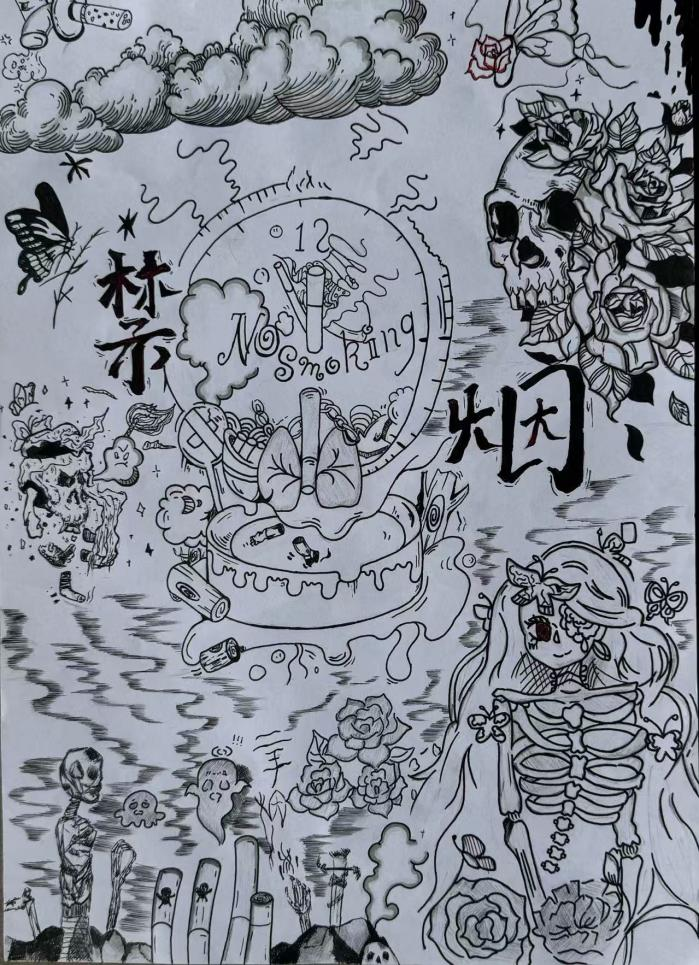 12
No
Smoking
禁
烟